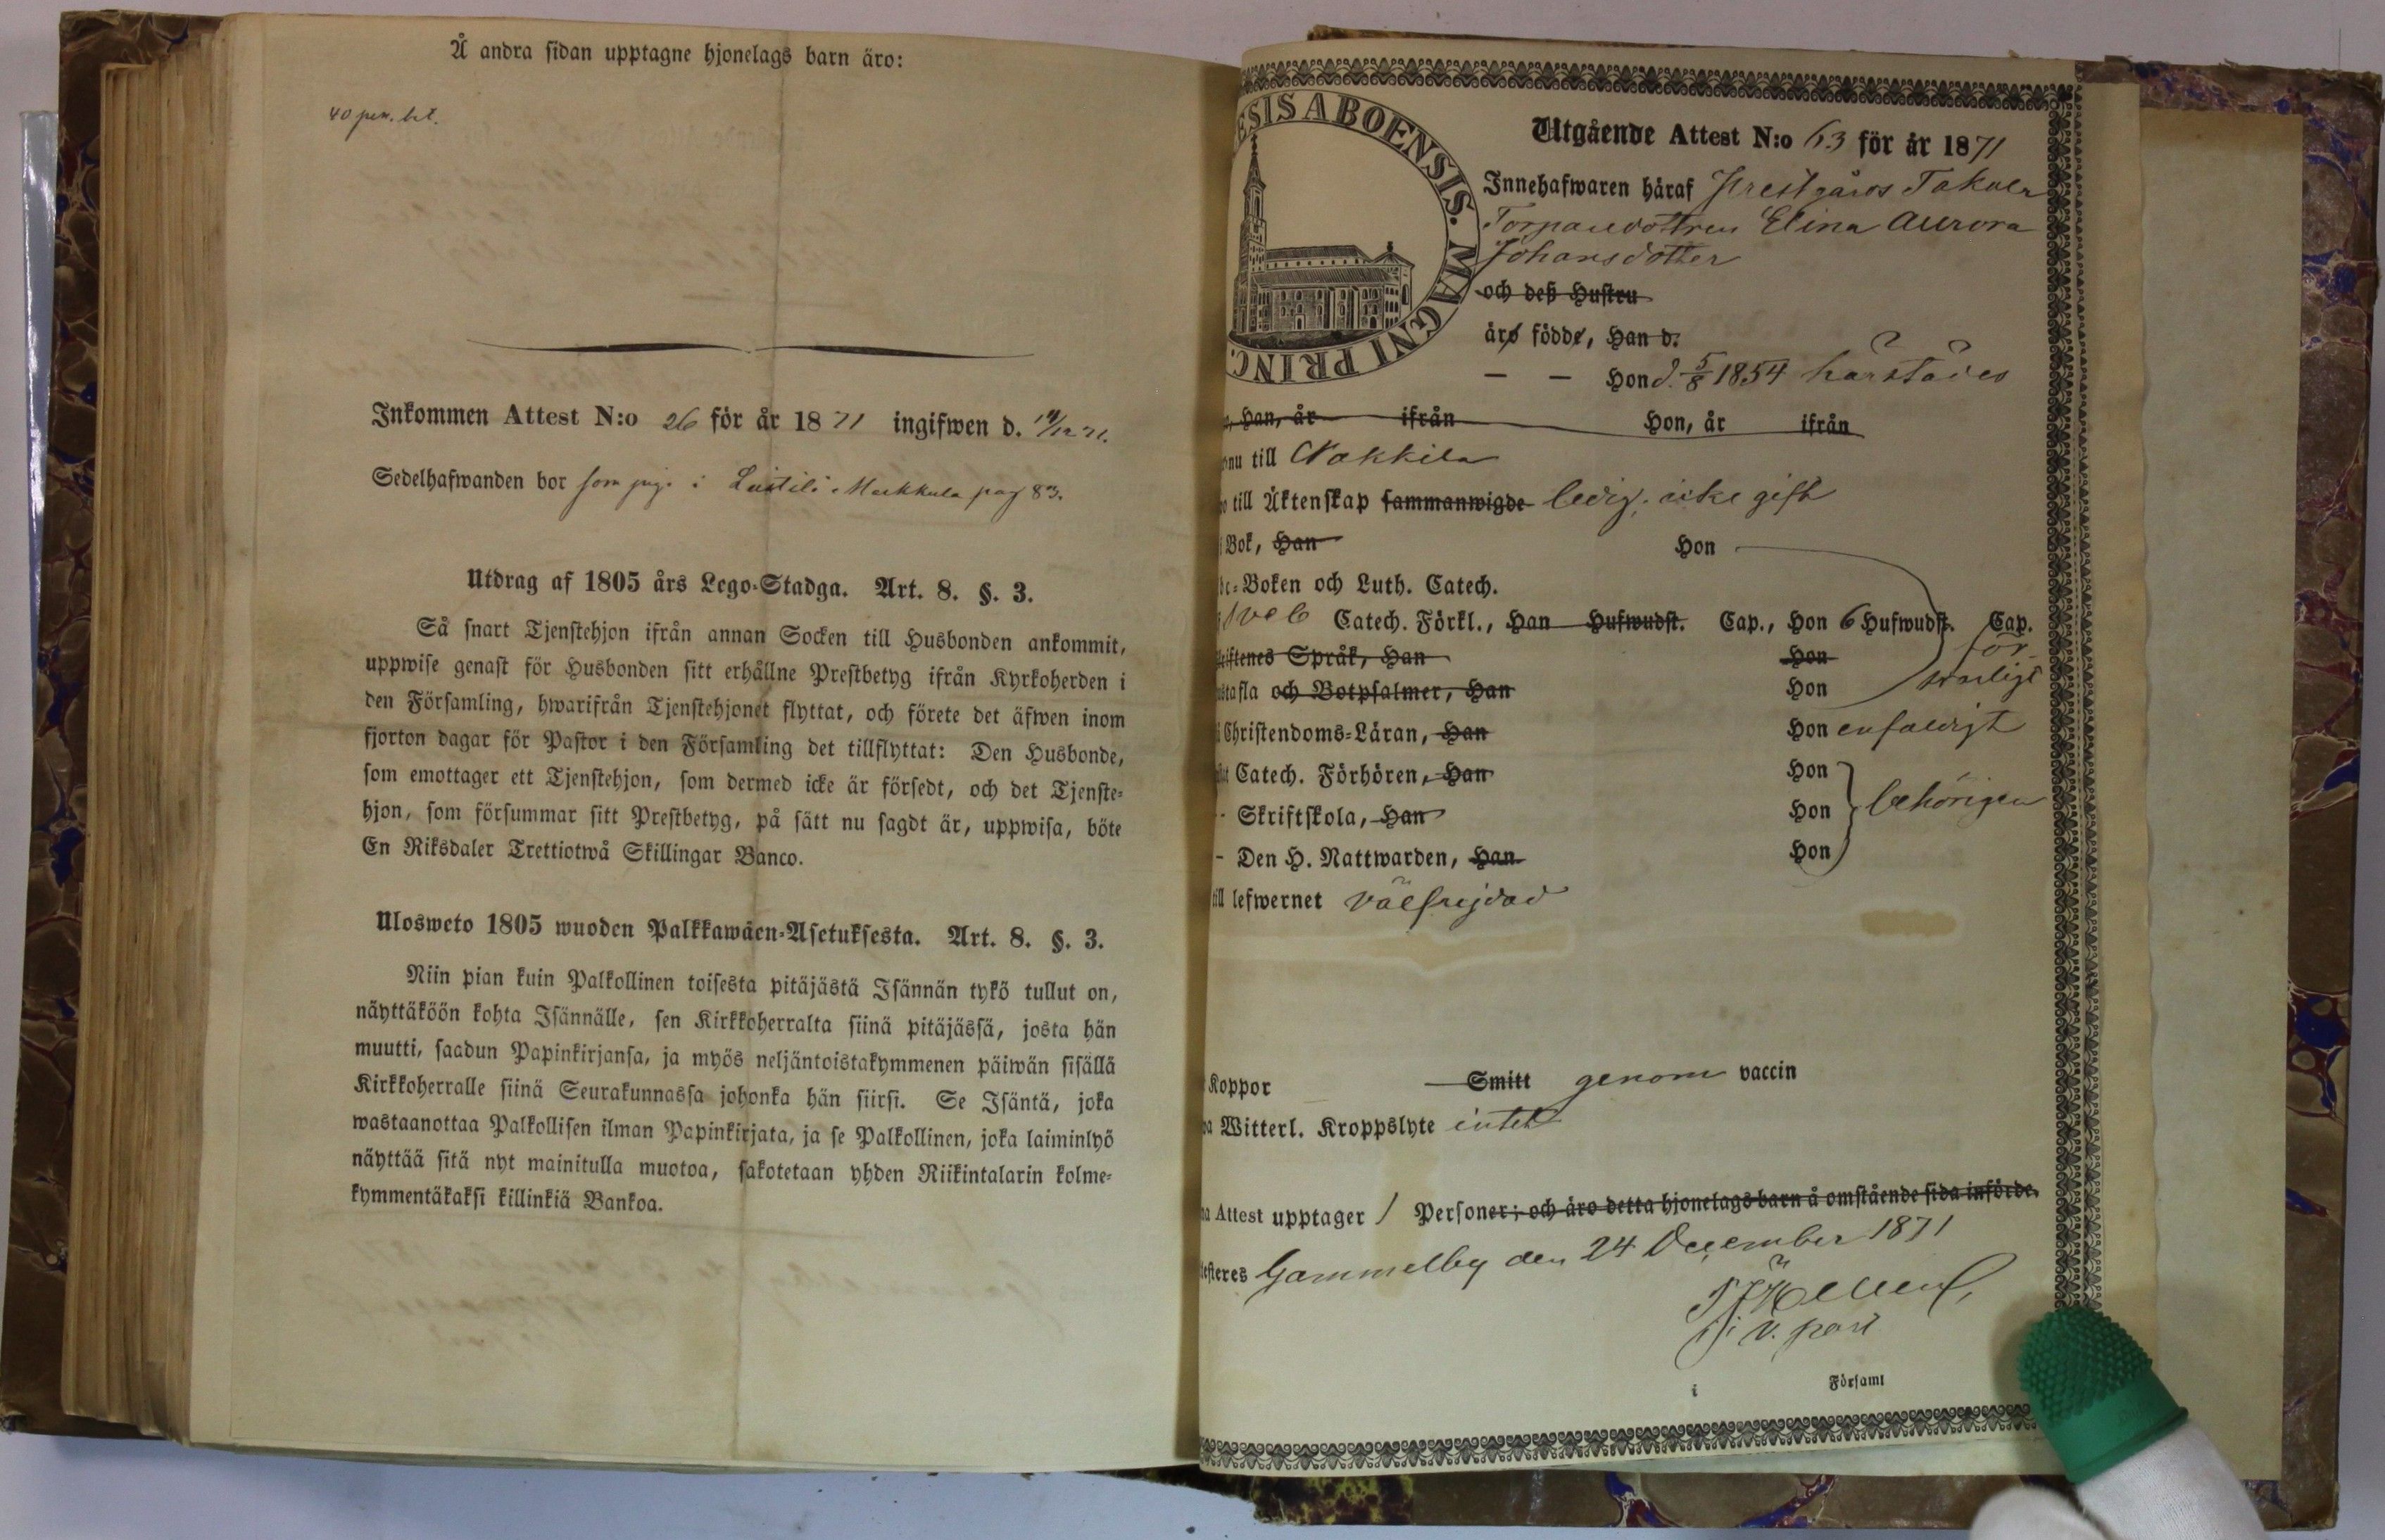 Å andra sidan upptagne hjonelags barn äro:
40 pen. bet.
Inkommen Attest N:o 26 för år 1871 ingifwen d.
Sedelhafwanden bor som pig. i Markkula pag 83.
Utdrag af 1805 års Lego-Stadga. Art. 8. §. 3.
Så snart Tjenstehjon ifrån annan Socken till Husbonden ankommit,
uppwise genast för Husbonden sitt erhållne Prestbetyg ifrån Kyrkoherden i
den Församling, hwarifrån Tjenstehjonet flyttat, och förete det äfwen inom
fjorton dagar för Pastor i den Församling det tillflyttat: Den Husbonde,
som emottager ett Tjenstehjon, som dermed icke är försedt, och det Tjenste-
hjon, som försummar sitt Prestbetyg, på sätt nu sagdt är, uppwisa, böte
En Riksdaler Trettiotwå Skillingar Banco.
Ulosweto 1805 wuoden Palkkawäen-Asetuksesta. Art. 8. §. 3.
Niin pian kuin Palkollinen toisesta pitäjästä Isännän tykö tullut on,
näyttäköön kohta Isännälle, sen Kirkkoherralta siinä pitäjässä, josta hän
muutti, saadun Papinkirjansa, ja myös neljäntoistakymmenen päiwän sisällä
Kirkkoherralle siinä Seurakunnassa johonka hän siirsi. Se Isäntä, joka
wastaanottaa Palkollisen ilman Papinkirjata, ja se Palkollinen, joka laiminlyö
näyttää sitä nyt mainitulla muotoa, sakotetaan yhden Riikintalarin kolme-
kymmentäkaksi killinkiä Bankoa.
ESIS ABOENSIS. MAGNI PRINC.
Utgående Attest N:o 63 för år 1871
Innehafwaren häraf Prestgårds Takala
Torparedottren Elina Aurora
Johansdotter
och deß Hustru
äro födde, Han d.
— — Hon d. 5/8 1854 härstädes
, Han, år ifrån Hon, år ifrån
nu till Nakkila
till Äktenskap sammanwigde ledig, icke gift
i Bok, Han Hon
de-Boken och Luth. Catech.
Catech. Förkl., Han Hufwudst. Cap., Hon 6 Hufwudst. Cap.
iftenes Språk, Han Hon för-
stafla och Botpsalmer, Han Hon swarligt
i Christendoms-Läran, Han Hon enfaldigt
Catech. Förhören, Han Hon
- Skriftskola, Han Hon behörigen
- Den H. Nattwarden, Han Hon
till lefwernet välfrejdad
Koppor Smitt genom vaccin
Witterl. Kroppslyte intet
na Attest upptager 1 Personer; och äro detta hjonelags barn å omstående sida införde.
testeres Gammelby den 24 December 1871
v. past
i Församl